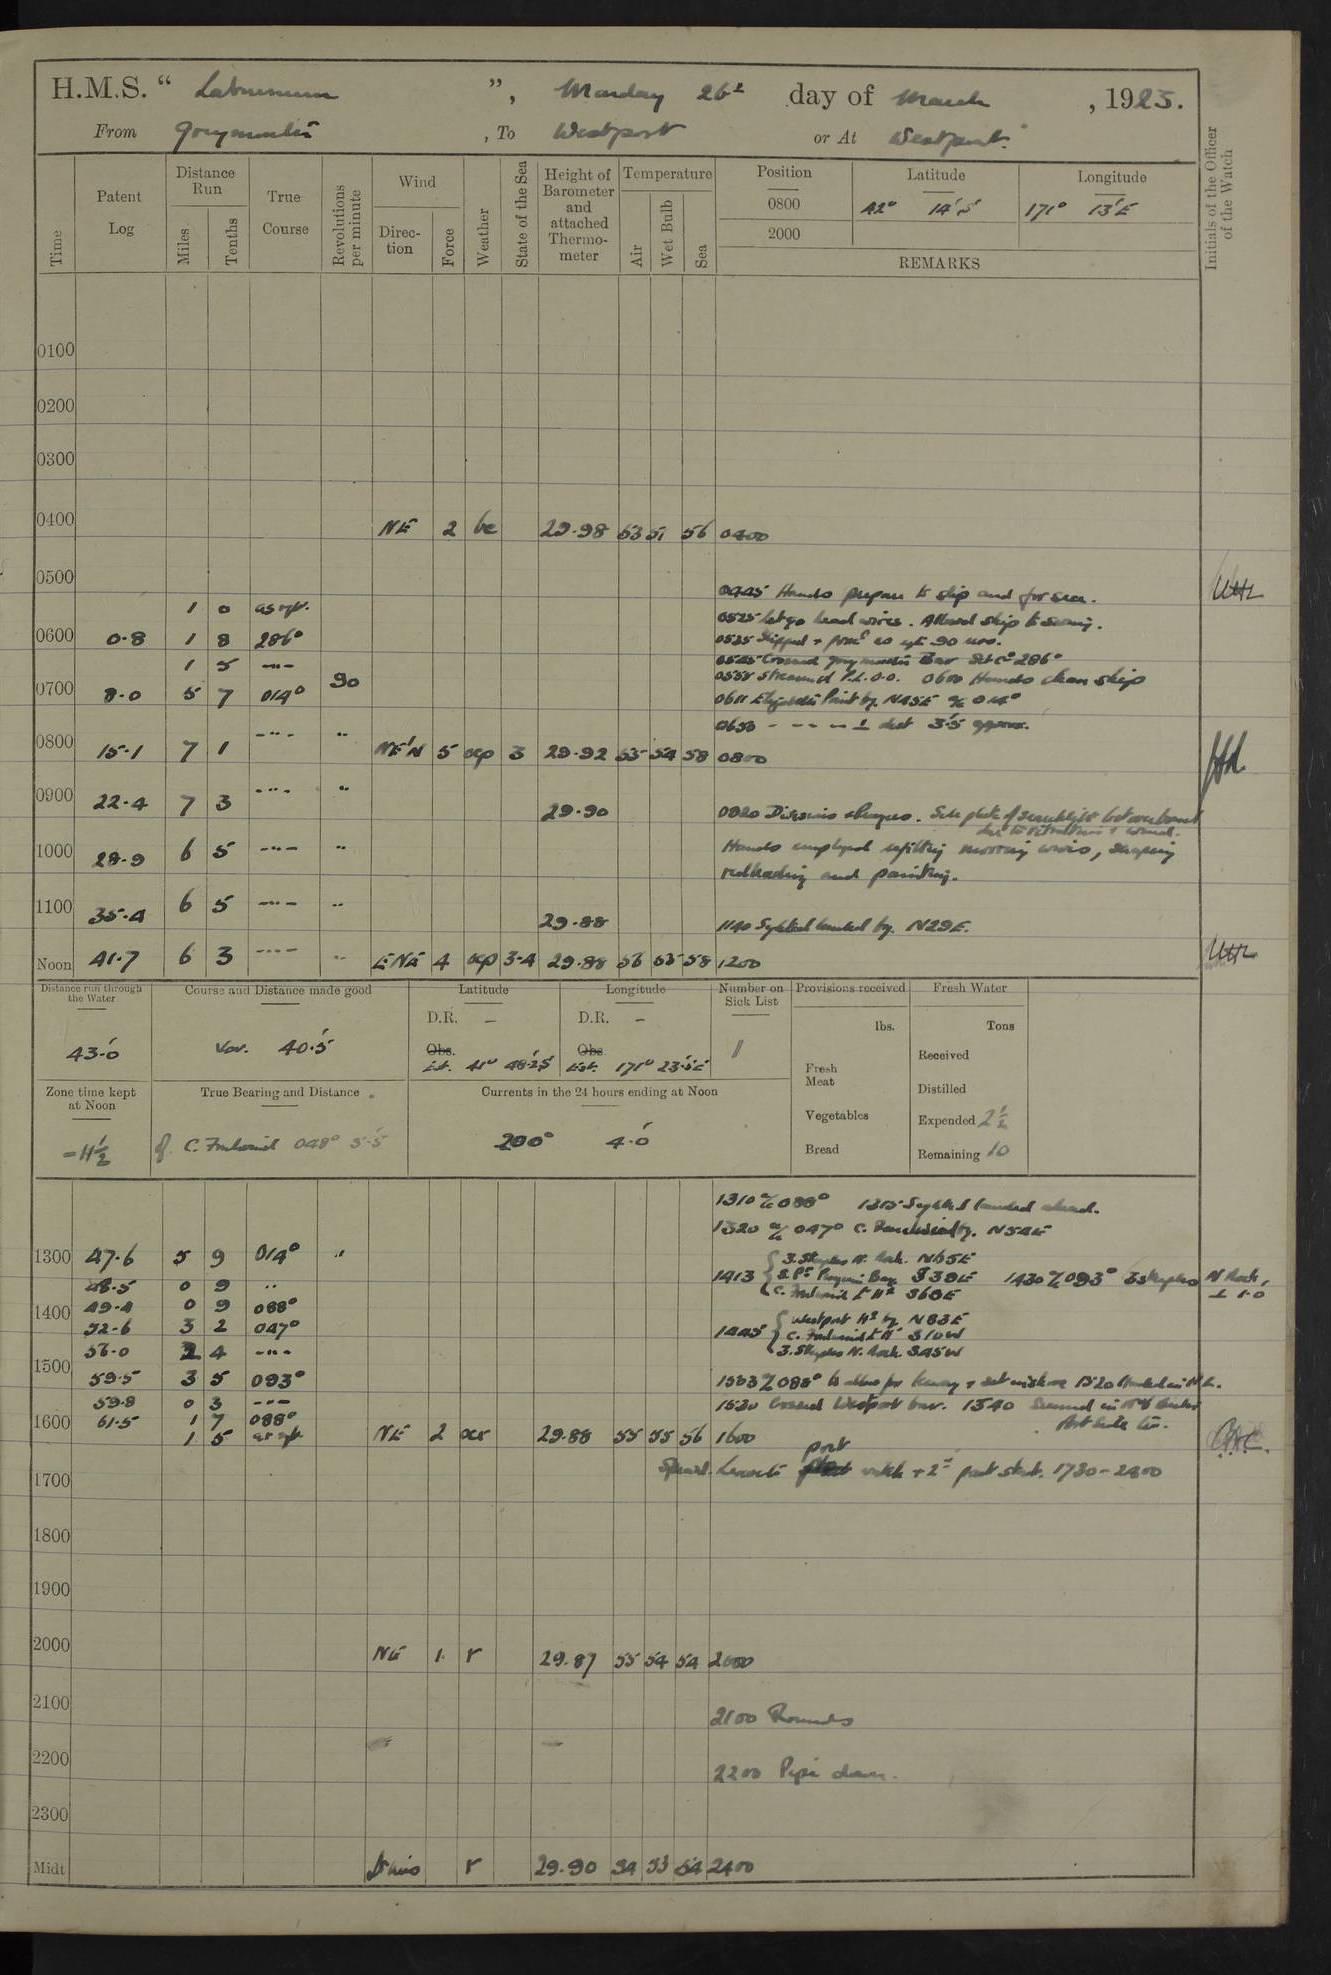 H.M.S. “ Laburnum ”, Monday 26th day of March, 1923.
From Greymouth, To Westport or At Westport.
Time
Patent Log
Distance Run
Miles
Tenths
True Course
Revolutions per minute
Wind
Direction
Force
Weather
State of the Sea
Height of Barometer and attached Thermometer
Temperature
Air
Wet Bulb
Sea
Position Latitude Longitude
0800 42° 14'S 171° 13'E
2000
REMARKS
Initials of the Officer of the Watch
0100
0200
0300
0400 NE 2 bc 29.98 53 51 56 0400
0500
0445 Hands prepare to slip and for sea.
1 0 as rqt.
0525 Let go head wires. Allowed ship to swing.
0600 0.8 1 8 286°
0535 Slipped + proc'd
1 5 -"-
0545 Crossed Greymouth Bar Set Co 286°
0555 Streamed P.L. 0.0. 0600 Hands clean ship
0700 8.0 5 7 014° 90
0611 Point by. N45E a/c 014°
0650 - - - - ⊥ dist 3'.5 approx.
0800 15.1 7 1 -"- " NE'N 5 ocp 3 29.92 55 54 58 0800
0900 22.4 7 3 -"- " 29.90
0920 Divisions &
due to vibration + wind.
1000 28.9 6 5 -"- "
Hands employed refitting mooring wires, scraping
redleading and painting.
1100 35.4 6 5 -"- " 29.88
1140 Landed by. N29E.
Noon 41.7 6 3 -"- " ENE 4 ocp 3-4 29.88 56 55 58 1200
Distance run through the Water
43.0
Course and Distance made good
Var. 40.5
Latitude
D.R. -
Obs.
Est. 41° 48.25'
Longitude
D.R. -
Obs
Est. 171° 23.5'E
Number on Sick List
11
Provisions received
lbs.
Fresh Meat
Vegetables
Bread
Fresh Water
Tons
Received
Distilled
Expended 2½
Remaining 10
Zone time kept at Noon
-11½
True Bearing and Distance
of C. Foulwind 048° 5.5
Currents in the 24 hours ending at Noon
200° 4.0
1310 a/c 088°
1320 a/c 047° C. Foulwind by. N54E
1300 47.6 5 9 014° "
3. Steeples N. Rock. N65E
1413
48.5 0 9 "
1430 a/c 093° 3 Steeples N Rock,
⊥ 1.0
1400 49.4 0 9 088°
52.6 3 2 047°
1445 Westport by N83E
C. Foulwind S10W
3. Steeples N. Rock. S45W
56.0 2 4 -"-
1500 59.5 3 5 093°
1503 a/c 088° to allow for leeway + set
59.8 0 3 -"-
1530 Crossed Westport bar. 1540 Secured
1600 61.5 1 7 088°
Port side to.
1 5 as rqt. NE 2 ocr 29.88 55 55 56 1600
port
Special Leave to watch + 2nd part stbd. 1730-2400
1700
1800
1900
2000 NE 1. r 29.87 55 54 54 2000
2100
2100 Rounds
2200
2200 Pipe down.
2300
Midt r 29.90 54 53 54 2400